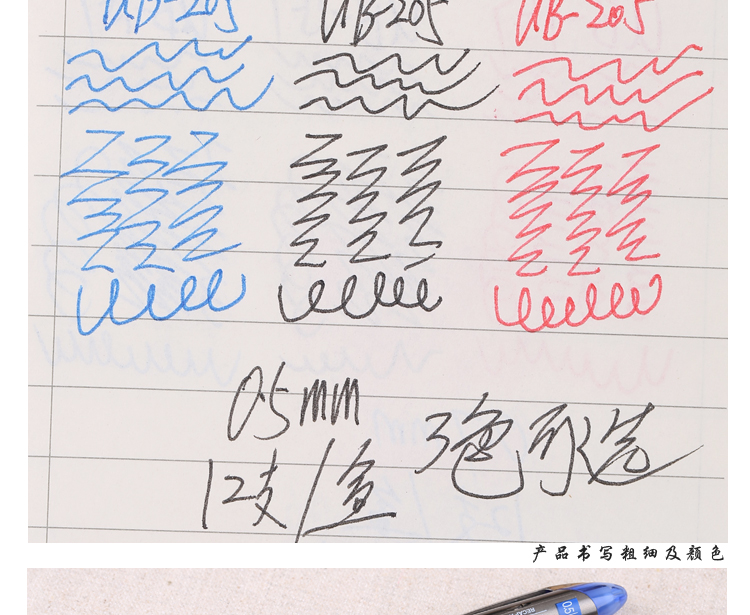 UB-205 UB-205 UB-205
0.5mm
3色可选
12支/盒
产品书写粗细及颜色
0.5